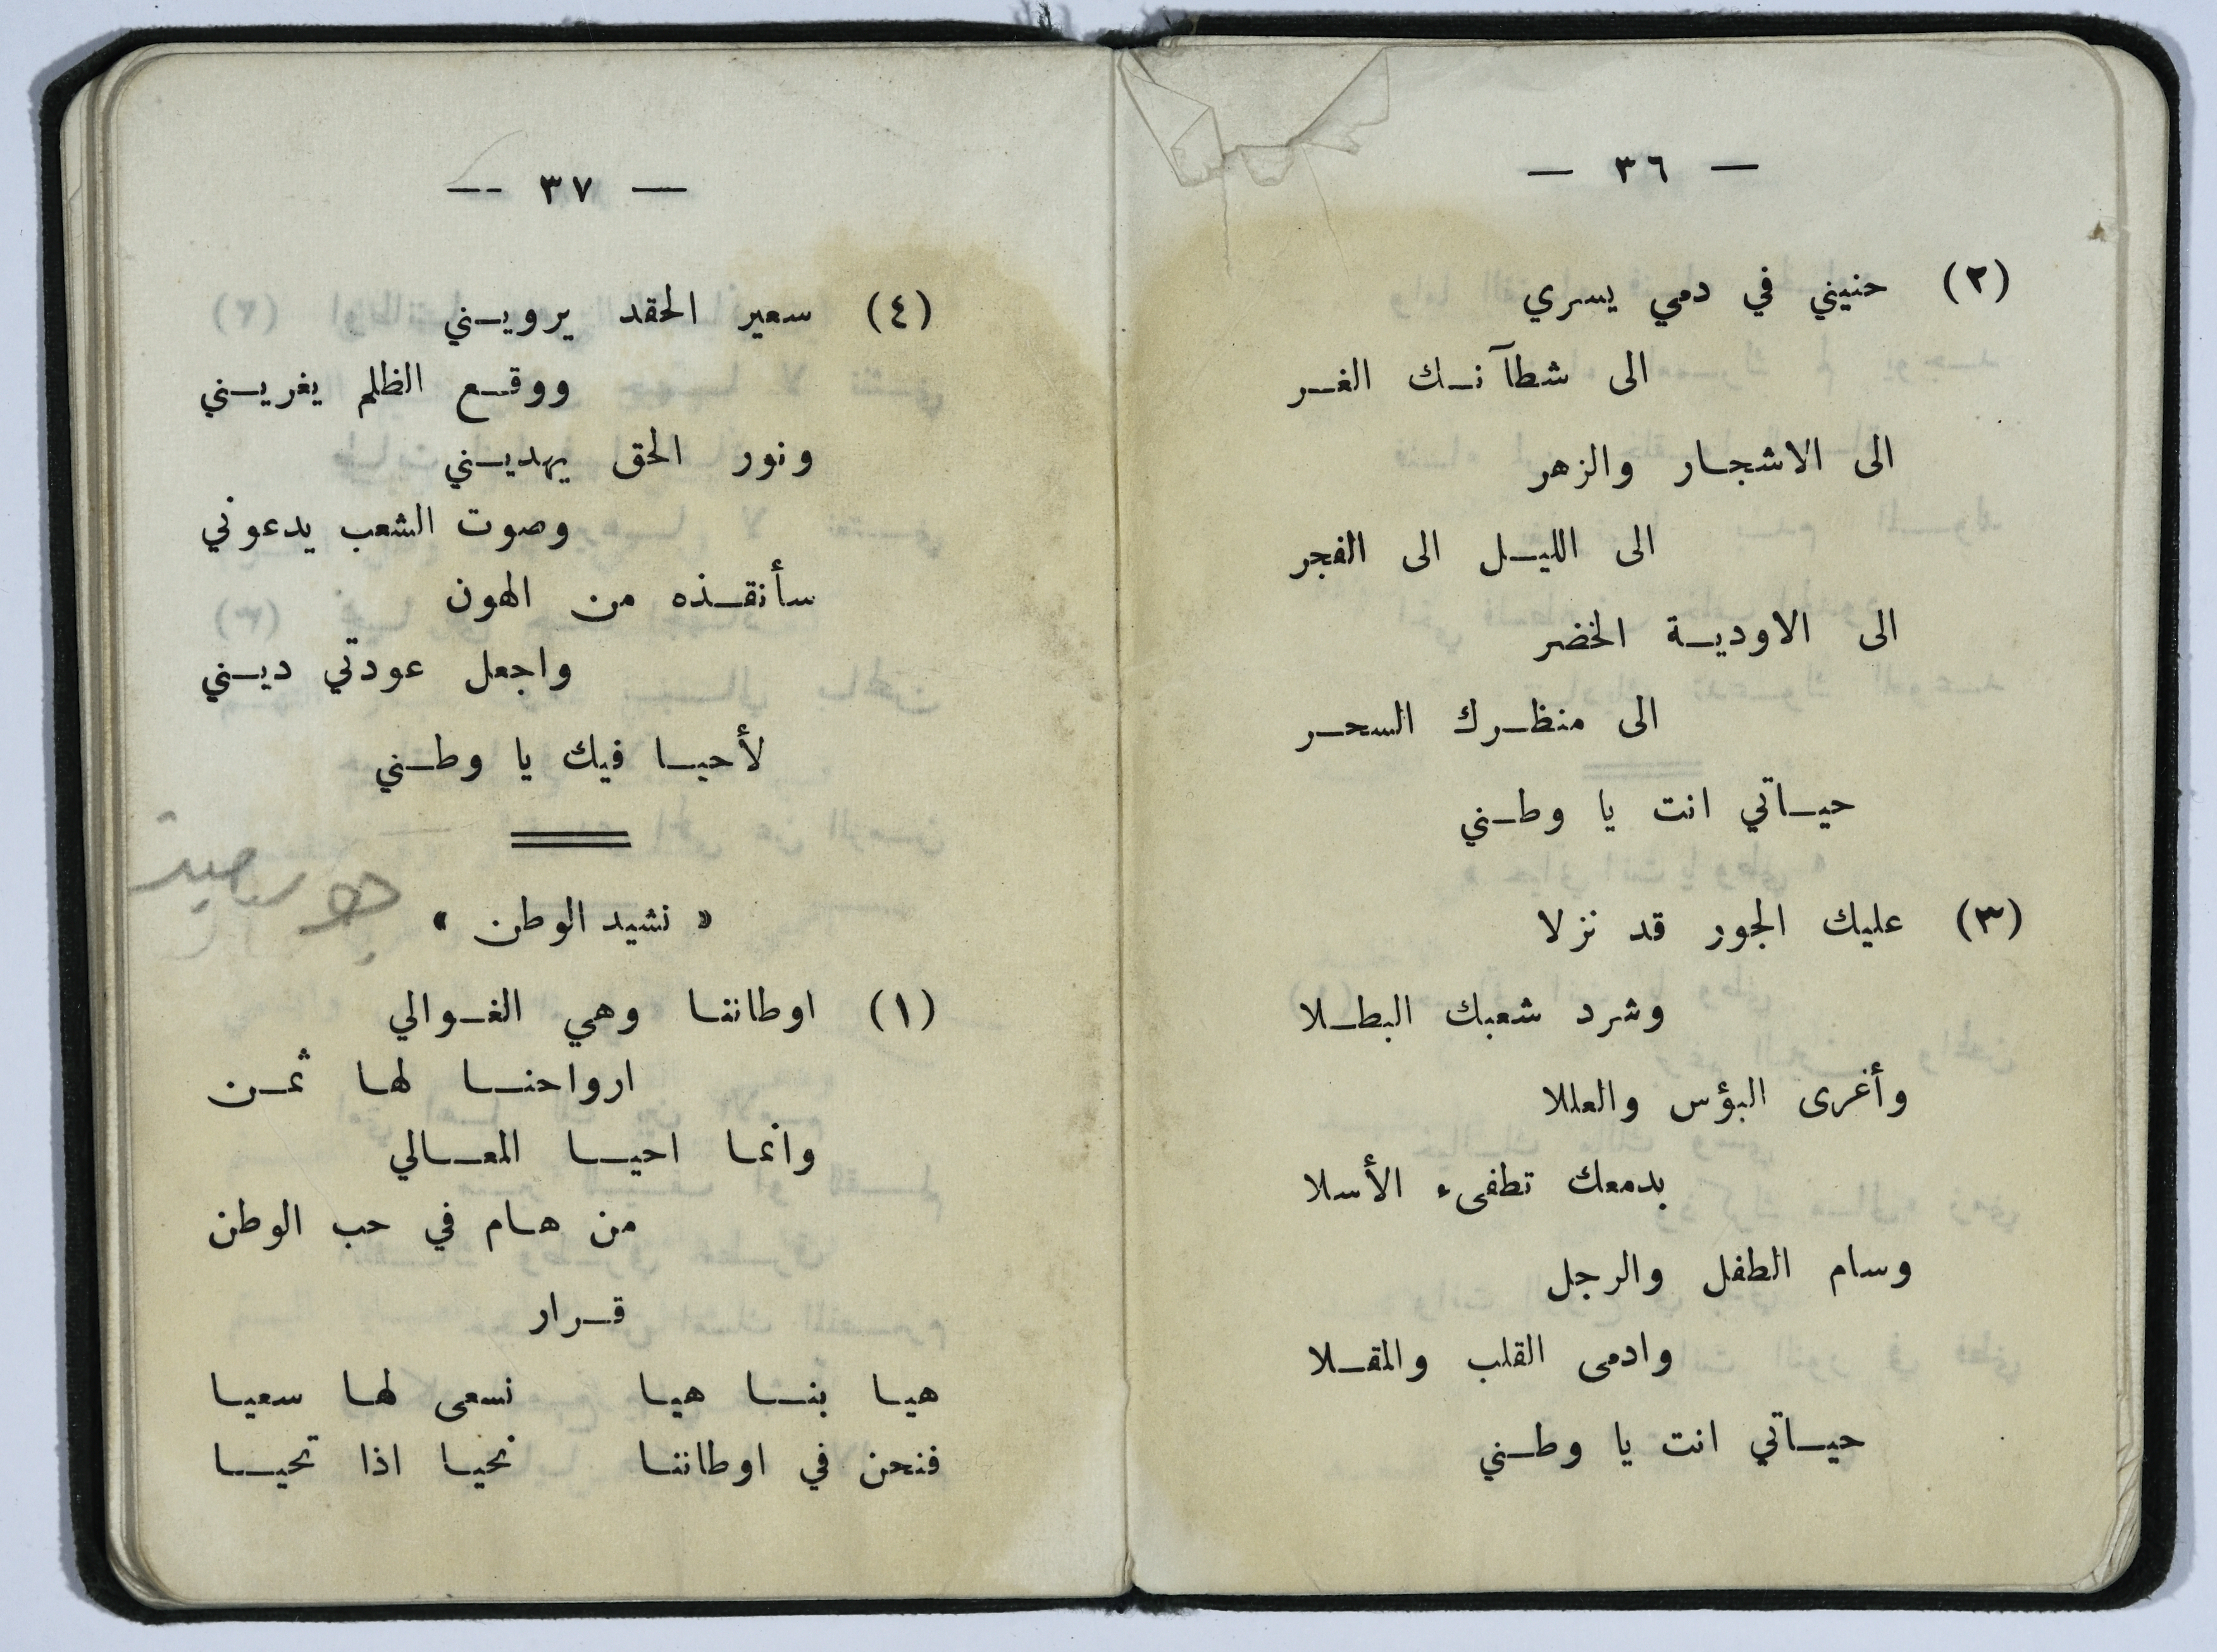 — ٣٦ —
(٢) حنيني في دمي يسري
الى شطآنك الغر
الى الاشجار والزهر
الى الليل الى الفجر
الى الاودية الخضر
الى منظرك السحر
حياتي انت يا وطني
(٣) عليك الجور قد نزلا
وشرد شعبك البطلا
وأغرى البؤس والعللا
بدمعك تطفىء الأسلا
وسام الطفل والرجل
وادمى القلب والمقلا
حياتي انت يا وطني
— ٣٧ —
(٤) سعير الحقد يرويني
ووقع الظلم يغريني
ونور الحق يهديني
وصوت الشعب يدعوني
سأنقذه من الهون
واجعل عودتي ديني
لأحيا فيك يا وطني
« نشيد الوطن »
(١) اوطاننا وهي الغوالي
ارواحنا لها ثمن
وانما احيا المعالي
من هام في حب الوطن
قرار
هيا بنا هيا نسعى لها سعيا
فنحن في اوطاننا نحيا اذا تحيا